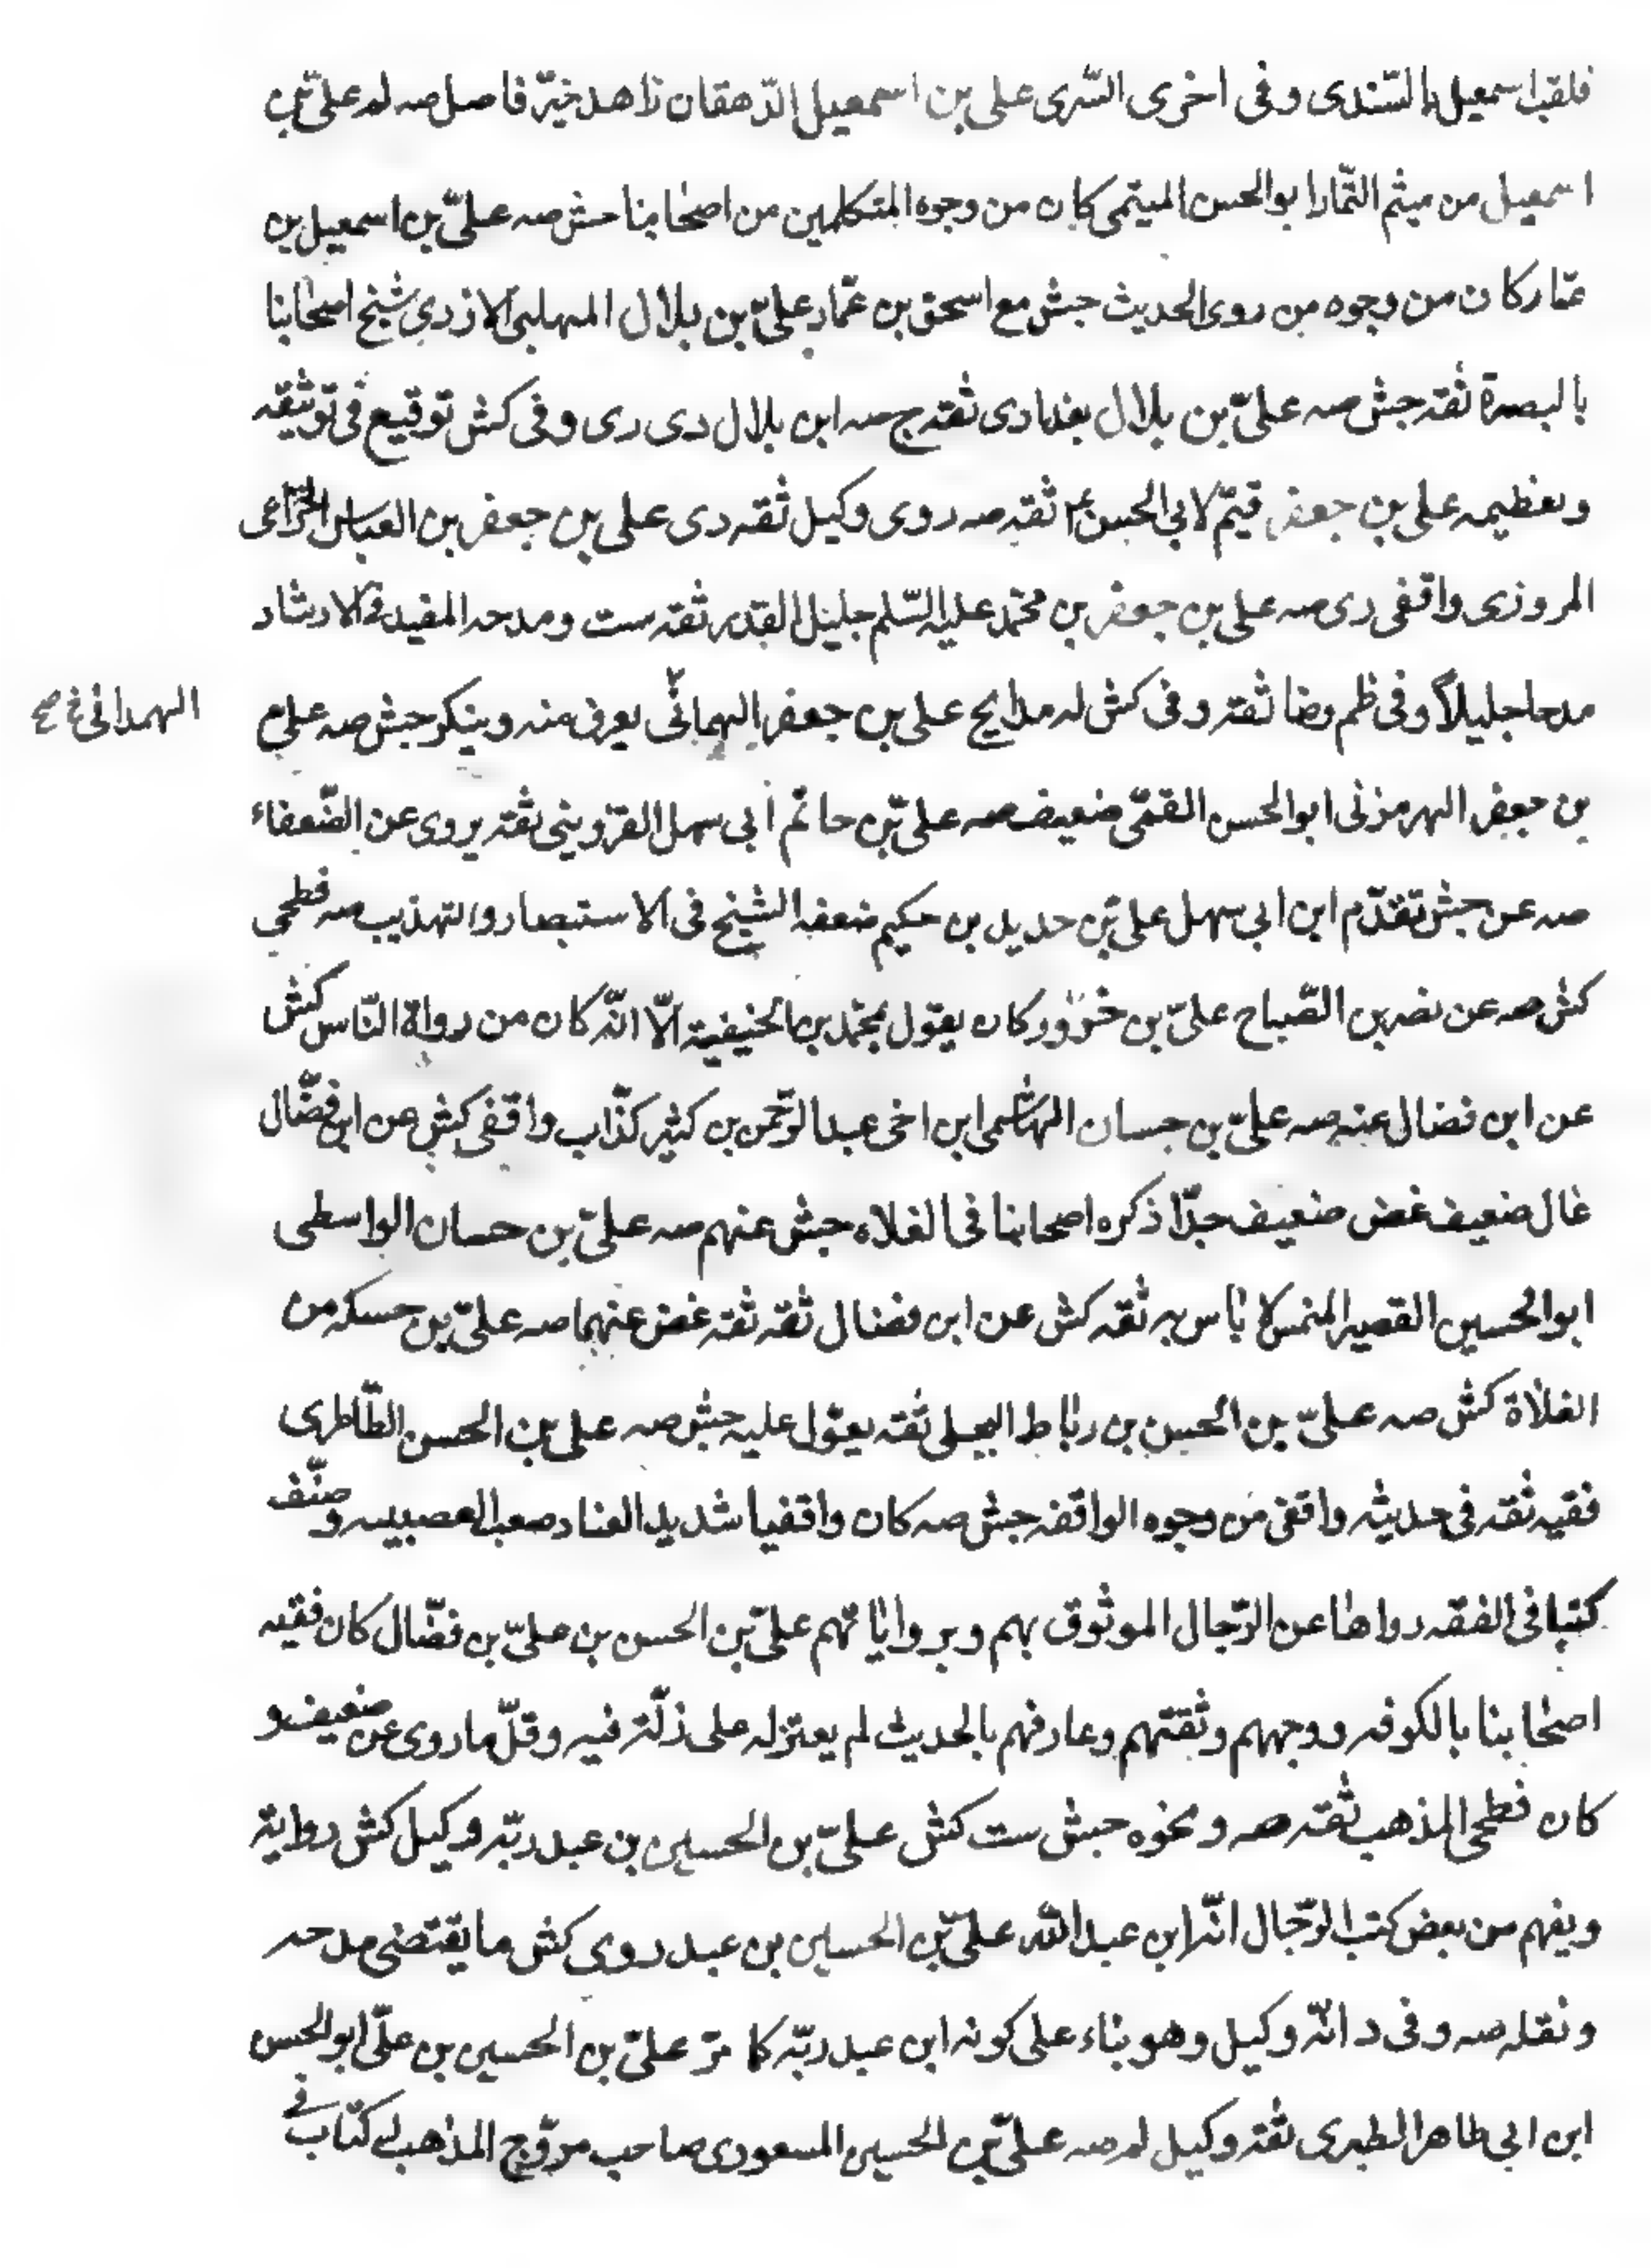 فلقب اسمعيل بالسّندى وفى اخرى السّرى على بن اسمعيل الدّهقان زاهد خيّر فاصل صه لم علىّ بن
اسمعيل من ميثم التّمار ابو الحسن الميثمى كان من وجوه المتكلمين من اصحابنا جش صه علىّ بن اسمعيل بن
عمّار كان من وجوه من روى الحديث جش مع اسحق بن عمّار علىّ بن بلال المهلبى الازدى شيخ اصحابنا
بالبصرة ثقه جش صه علىّ بن بلال بغدادى ثقه ج صه ابن بلال دى رى وفى كش توقيع فى توثيقه
وتعظيمه على بن جعفر قيّم لابى الحسن ع ثقه صه روى وكيل ثقه دى على بن جعفر بن العباس الخزاعى
المروزى واقفى رى صه على بن جعفر بن محمّد عليه السّلم جليل القدر ثقه ست ومدحه المفيد فى الارشاد
مدحا جليلا وفى ظم وضا ثقه وفى كش له مدايح على بن جعفر الهمانى يعرف منه وينكر جش صه على
الهمدانى خ صح
بن جعفر الهرمزانى ابو الحسن القمّى ضعيف صه علىّ بن حاتم أبى سهل القزوينى ثقه يروى عن الضّعفاء
صه عن جش تقدّم ابن ابى سهل علىّ بن حديد بن حكيم ضعفه الشيخ فى الاستبصار والتهذيب صه فطحى
كش صه عن نصر بن الصّباح علىّ بن خزور كان يقول بمحمّد بن الحنيفية الّا انّه كان من رواة النّاس كش
عن ابن فضال عنه صه علىّ بن حسان الهاشمى ابن اخى عبد الرّحمن بن كثير كذّاب واقفى كش عن ابن فضّال
غال ضعيف غض ضعيف جدّا ذكره اصحابنا فى الغلاء جش عنهم صه علىّ بن حسان الواسطى
ابو الحسين القصير المنمس لا باس به ثقه كش عن ابن فضال ثقه ثقه غض عنهما صه علىّ بن حسكه من
الغلاة كش صه علىّ بن الحسن بن رباط البجلى ثقه يعوّل عليه جش صه على بن الحسن الطّاطرى
فقيه ثقه فى حديثه واقفى من وجوه الواقفه جش صه كان واقفيا شديد العناد صعب العصبيه وصنّف
كتبا فى الفقه رواها عن الرّجال الموثوق بهم وبرواياتهم علىّ بن الحسن بن علىّ بن فضّال كان فقيه
اصحابنا بالكوفه ووجههم وثقتهم وعارفهم بالحديث لم يعتزله على ذلّة فيه وقلّ ما روى عن ضعيف و
كان فطحى المذهب ثقه صه ونحوه جش ست كش علىّ بن الحسين بن عبد ربّه وكيل كش رواية
ويفهم من بعض كتب الرّجال انّه ابن عبد اللّه علىّ بن الحسين بن عبد روى كش ما يقتضى مدحه
ونقله صه وفى د انّه وكيل وهو بناء على كونه ابن عبد ربّه كما مرّ علىّ بن الحسين بن علىّ ابو الحسن
ابن ابى طاهر الطبرى ثقه وكيل لم صه علىّ بن الحسين المسعودى صاحب مروّج المذهب له كتاب فى